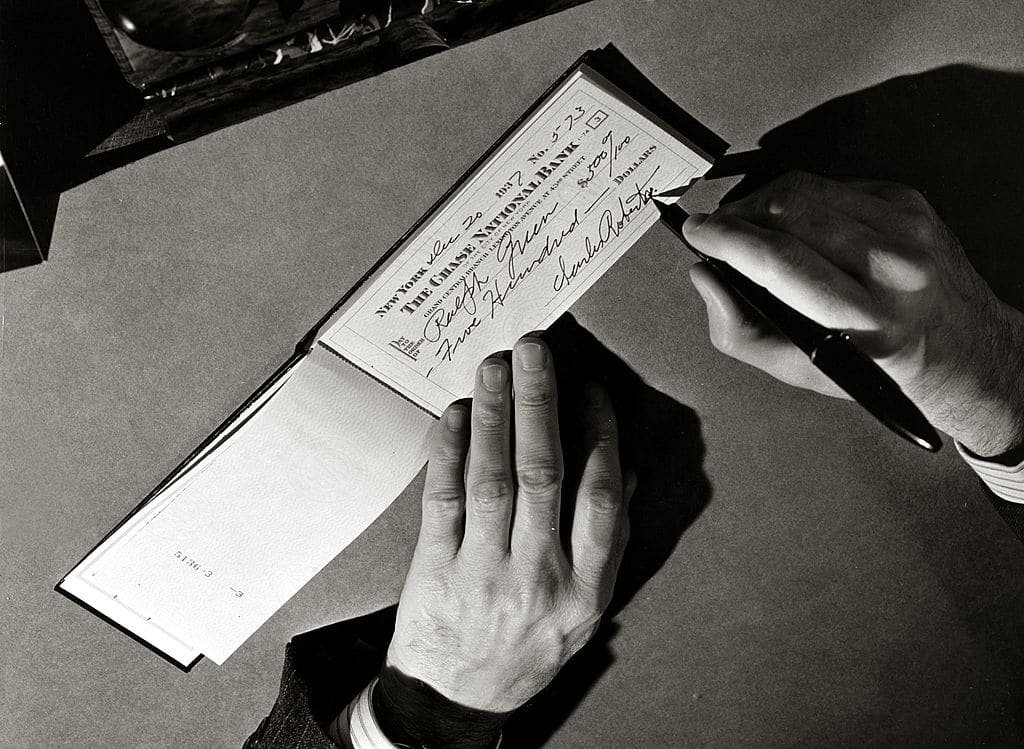 No. 573
New York Dec 20 1937
1-74
3
The Chase National Bank
OF THE CITY OF NEW YORK
Grand Central Branch Lexington Avenue at 43rd Street
Pay to the order of Ralph Green $500 00/100
Five Hundred — Dollars
Charles Roberts
5136-3 —3